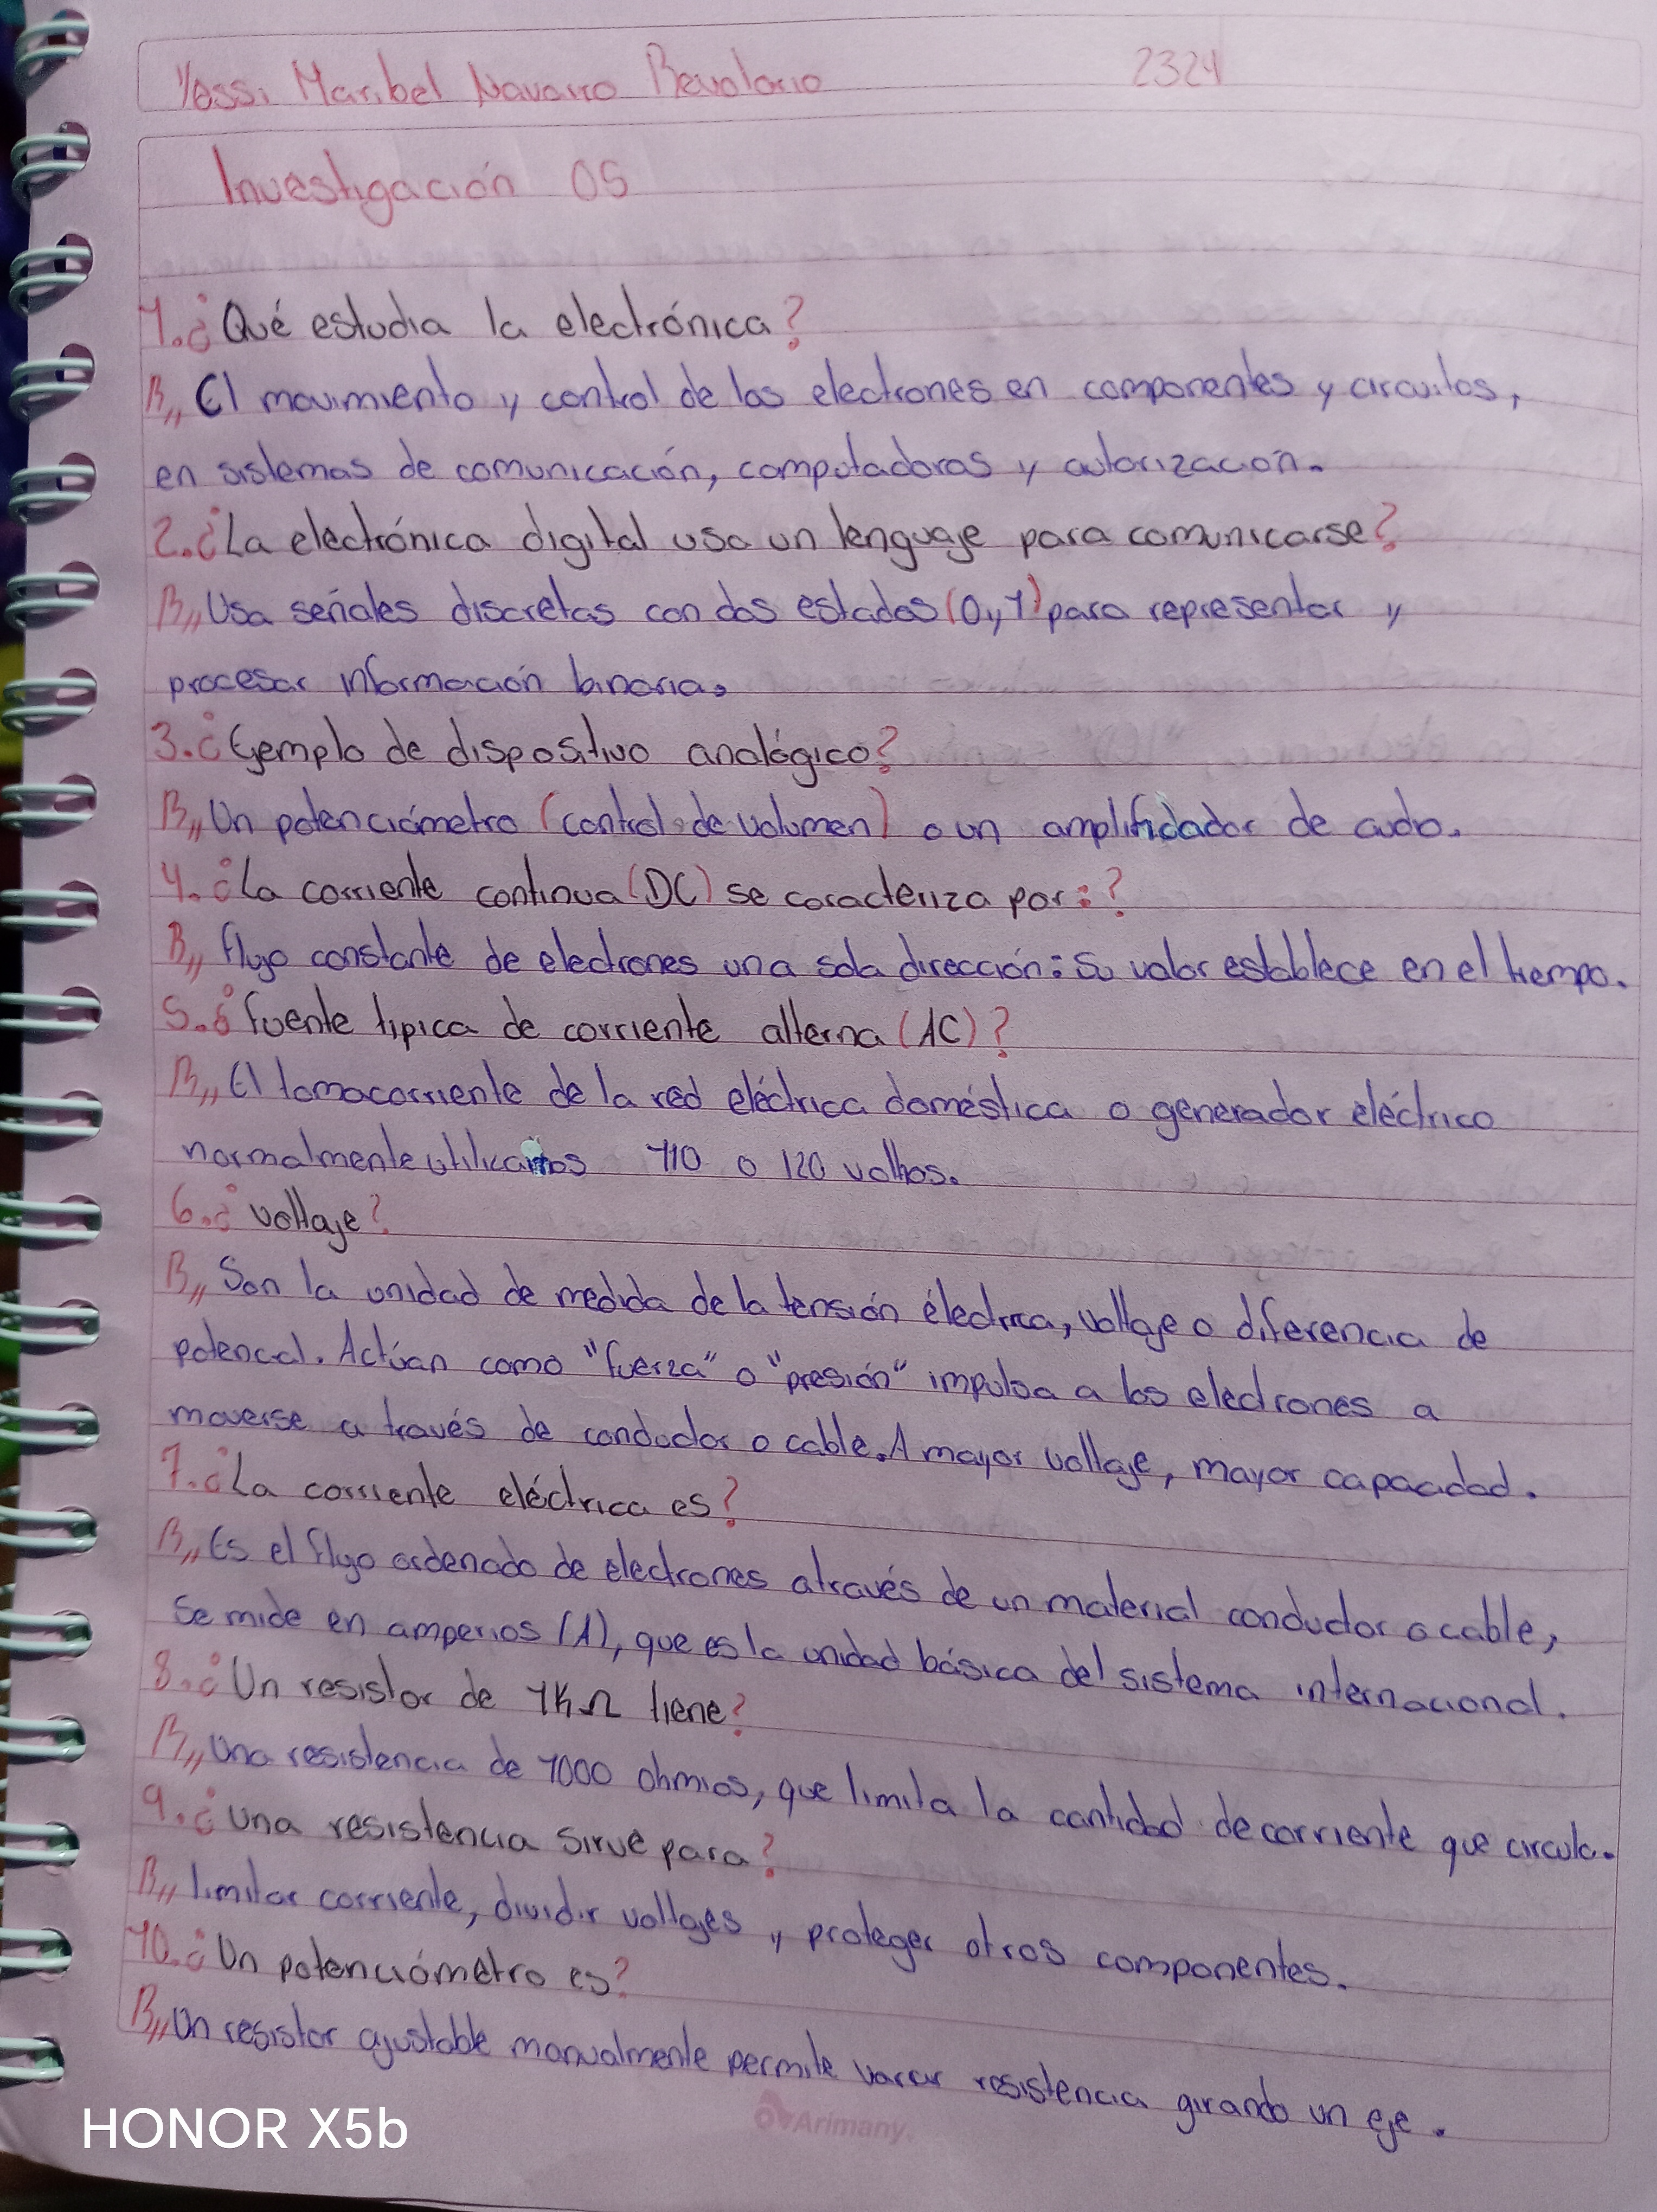 Yessi Maribel Navarro Revolorio 2324
Investigación 05
1. ¿Qué estudia la electrónica?
R,, El movimiento y control de los electrones en componentes y circuitos,
en sistemas de comunicación, computadoras y autorización.
2. ¿La electrónica digital usa un lenguaje para comunicarse?
R,, Usa señales discretas con dos estados (0 y 1) para representar y
procesar información binaria.
3. ¿Ejemplo de dispositivo analógico?
R,, Un potenciómetro (control de volumen) o un amplificador de audio.
4. ¿La corriente continua (DC) se caracteriza por:?
R,, flujo constante de electrones una sola dirección: Su valor establece en el tiempo.
5. ¿fuente típica de corriente alterna (AC)?
R,, El tomacorriente de la red eléctrica doméstica o generador eléctrico
normalmente utilicamos 110 o 120 voltios.
6. ¿voltaje?
R,, Son la unidad de medida de la tensión éléctrica, voltaje o diferencia de
potencial. Actúan como "fuerza" o "presión" impulsa a los electrones a
moverse a través de conductor o cable. A mayor voltaje, mayor capacidad.
7. ¿La corriente eléctrica es?
R,, Es el flujo ordenado de electrones através de un material conductor o cable,
se mide en amperios (A), que es la unidad básica del sistema internacional.
8. ¿Un resistor de 1KΩ tiene?
R,, Una resistencia de 1000 ohmios, que limita la cantidad de corriente que circula.
9. ¿una resistencia sirve para?
R,, limitar corriente, dividir voltajes y proteger otros componentes.
10. ¿Un potenciómetro es?
R,, Un resistor ajustable manualmente permite variar resistencia girando un eje.
Arimany
HONOR X5b